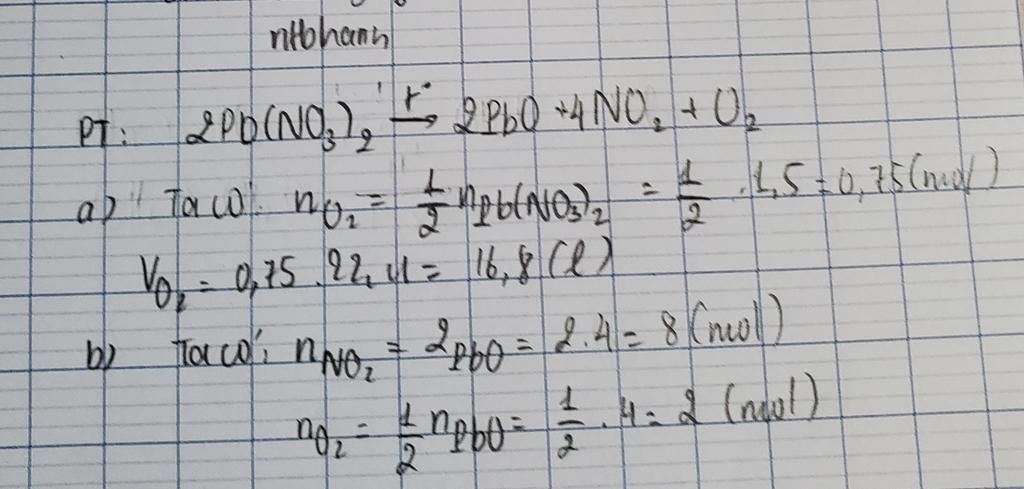 nHbhanh
PT: 2Pb(NO₃)₂ →t° 2PbO + 4NO₂ + O₂
a) Ta có: nO₂ = 1/2 nPb(NO₃)₂ = 1/2 . 1,5 = 0,75 (mol)
VO₂ = 0,75 . 22,4 = 16,8 (l)
b) Ta có: nNO₂ = 2PbO = 2.4 = 8 (mol)
nO₂ = 1/2 nPbO = 1/2 . 4 = 2 (mol)